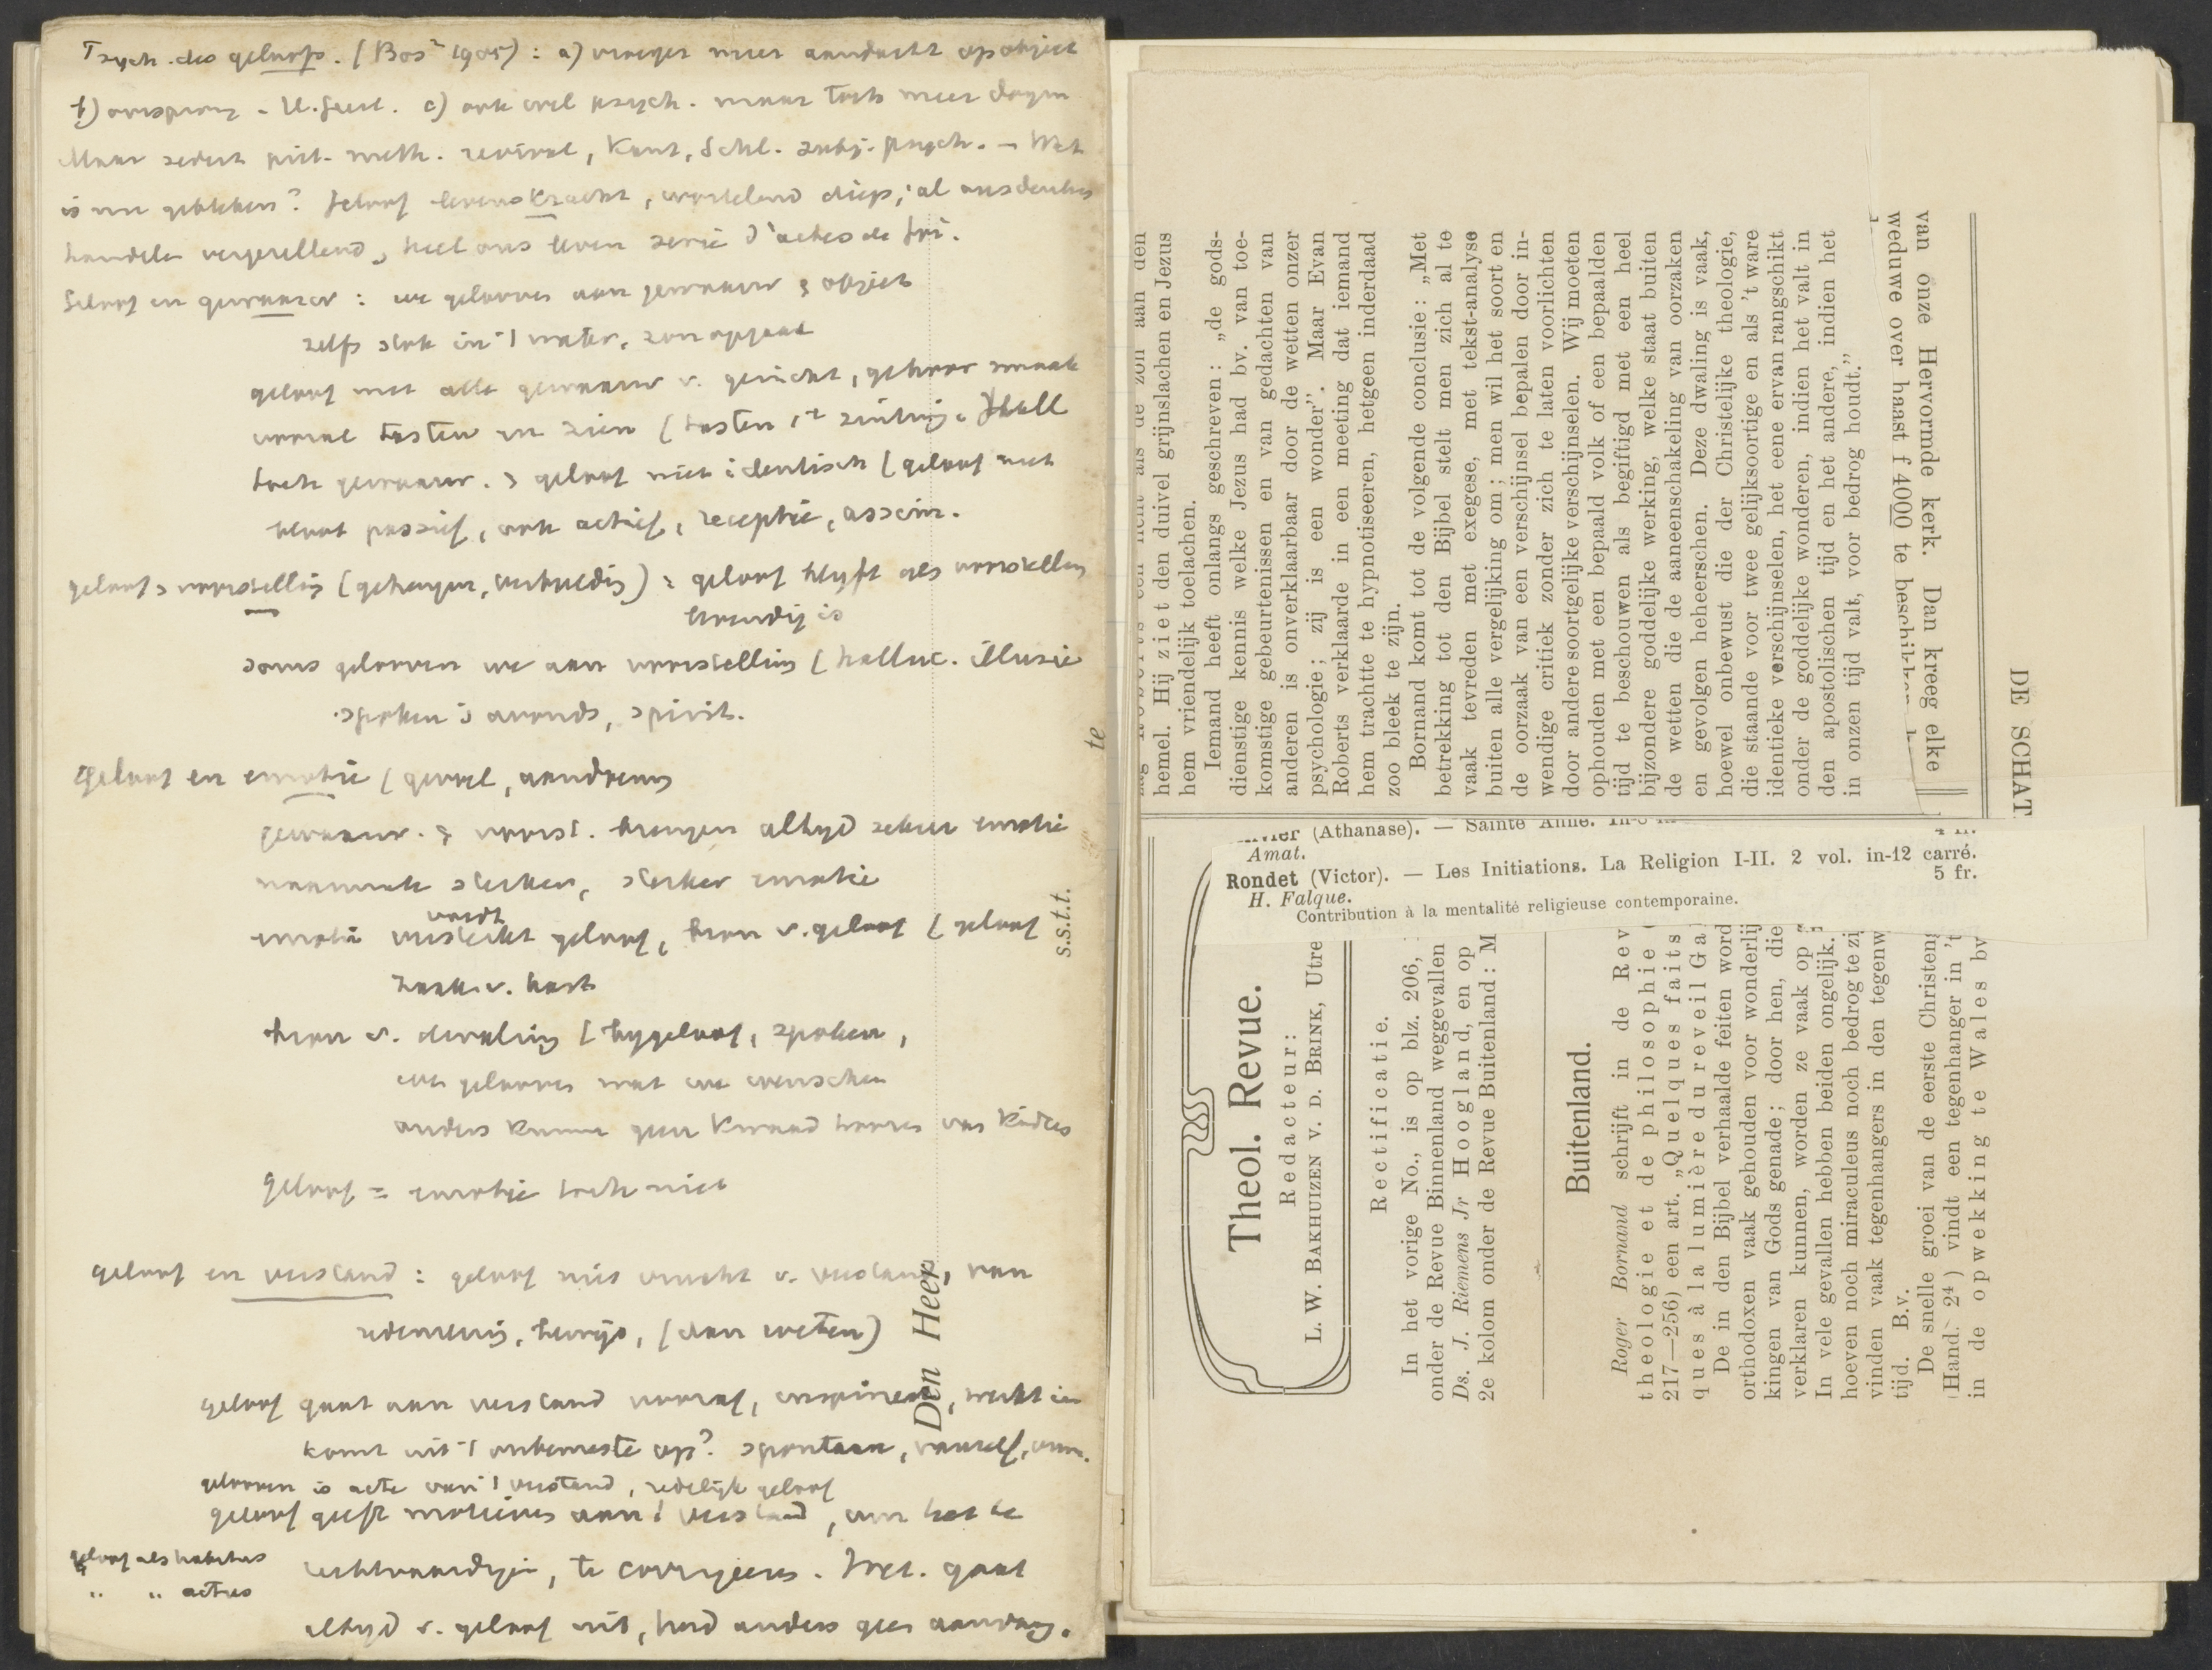 Psych. des geloofs. (Bos² 1905): a) vroeger meer aandacht op object
b) oorsprong - H. Geest. c) ook wel psych. maar toch meer dogm
Maar sedert piët. meth. revival, Kant, Schl. subj. psych. – Wat
is nu gebleken? geloof levenskracht, wortelend diep; al ons denken
handelen vergezellend, heel ons leven serie d'actes de foi.
Geloof en gewaarw: we gelooven aan gewaarw & object
zelfs stok in 't water, zon opgaat
geloof met alle gewaarw v. gezicht, gehoor smaak
vooral tasten en zien (tasten 1e zintuig.
toch gewaarw. & geloof niet identisch (geloof niet
bloot passief, ook actief, receptie, assim.
geloof & voorstelling (geheugen, verbeelding): geloof blijft als voorstelling
levendig is
soms gelooven we aan voorstelling (halluc. illusie
spoken 's avonds, spirit.
Geloof en emotie (gevoel, aandoening
gewaarw. & voorst. brengen altijd zekere emotie
naarmate sterker, sterker emotie
emotie versterkt geloof, bron v. geloof (geloof
wordt
zaak v. hart
bron v. dwaling (bygeloof, spoken,
we gelooven wat we wenschen
anders kunnen geen kwaad hooren van kinderen
geloof = emotie toch niet
geloof en verstand: geloof niet vrucht v. verstand, van
redeneering, bewijs, (dan weten)
geloof gaat aan verstand vooraf, inspireert, werkt in
komt uit 't onbewuste op? spontaan, vanzelf,
gelooven is acte van 't verstand, redelijk geloof
geloof geeft motieven aan 't verstand, om het te
geloof als habitus
" " actus
rechtvaardigen, te corrigeeren. Wet. gaat
altijd v. geloof uit, had anders geen aandrang.
Den Heer
s.s.t.t.
te
hemel. Hij ziet den duivel grijnslachen en Jezus
hem vriendelijk toelachen.
Iemand heeft onlangs geschreven: „de gods-
dienstige kennis welke Jezus had bv. van toe-
komstige gebeurtenissen en van gedachten van
anderen is onverklaarbaar door de wetten onzer
psychologie; zij is een wonder”. Maar Evan
Roberts verklaarde in een meeting dat iemand
hem trachtte te hypnotiseeren, hetgeen inderdaad
zoo bleek te zijn.
Bornand komt tot de volgende conclusie: „Met
betrekking tot den Bijbel stelt men zich al te
vaak tevreden met exegese, met tekst-analyse
buiten alle vergelijking om; men wil het soort en
de oorzaak van een verschijnsel bepalen door in-
wendige critiek zonder zich te laten voorlichten
door andere soortgelijke verschijnselen. Wij moeten
ophouden met een bepaald volk of een bepaalden
tijd te beschouwen als begiftigd met een heel
bijzondere goddelijke werking, welke staat buiten
de wetten die de aaneenschakeling van oorzaken
en gevolgen beheerschen. Deze dwaling is vaak,
hoewel onbewust die der Christelijke theologie,
die staande voor twee gelijksoortige en als 't ware
identieke verschijnselen, het eene ervan rangschikt
onder de goddelijke wonderen, indien het valt in
den apostolischen tijd en het andere, indien het
in onzen tijd valt, voor bedrog houdt.”
van onze Hervormde kerk. Dan kreeg elke
weduwe over haast f 4000 te beschikken
DE SCHAT
(Athanase). — Sainte Anne.
Amat.
Rondet (Victor). — Les Initiations. La Religion I-II. 2 vol. in-12 carré.
H. Falque.
5 fr.
Contribution à la mentalité religieuse contemporaine.
Theol. Revue.
Redacteur:
L. W. BAKHUIZEN V. D. BRINK, Utre
Rectificatie.
In het vorige No., is op blz. 206,
onder de Revue Binnenland weggevallen
Ds. J. Riemens Jr Hoogland, en op
2e kolom onder de Revue Buitenland: M
Buitenland.
Roger Bornand schrijft in de Rev
theologie et de philosophie
217—256) een art. „Quelques faits
ques à la lumière du reveil Ga
De in den Bijbel verhaalde feiten word
orthodoxen vaak gehouden voor wonderlij
kingen van Gods genade; door hen, die
verklaren kunnen, worden ze vaak op
In vele gevallen hebben beiden ongelijk.
hoeven noch miraculeus noch bedrog te zi
vinden vaak tegenhangers in den tegenw
tijd. B.v.
De snelle groei van de eerste Christen
(Hand. 2⁴) vindt een tegenhanger in 't
in de opwekking te Wales bv